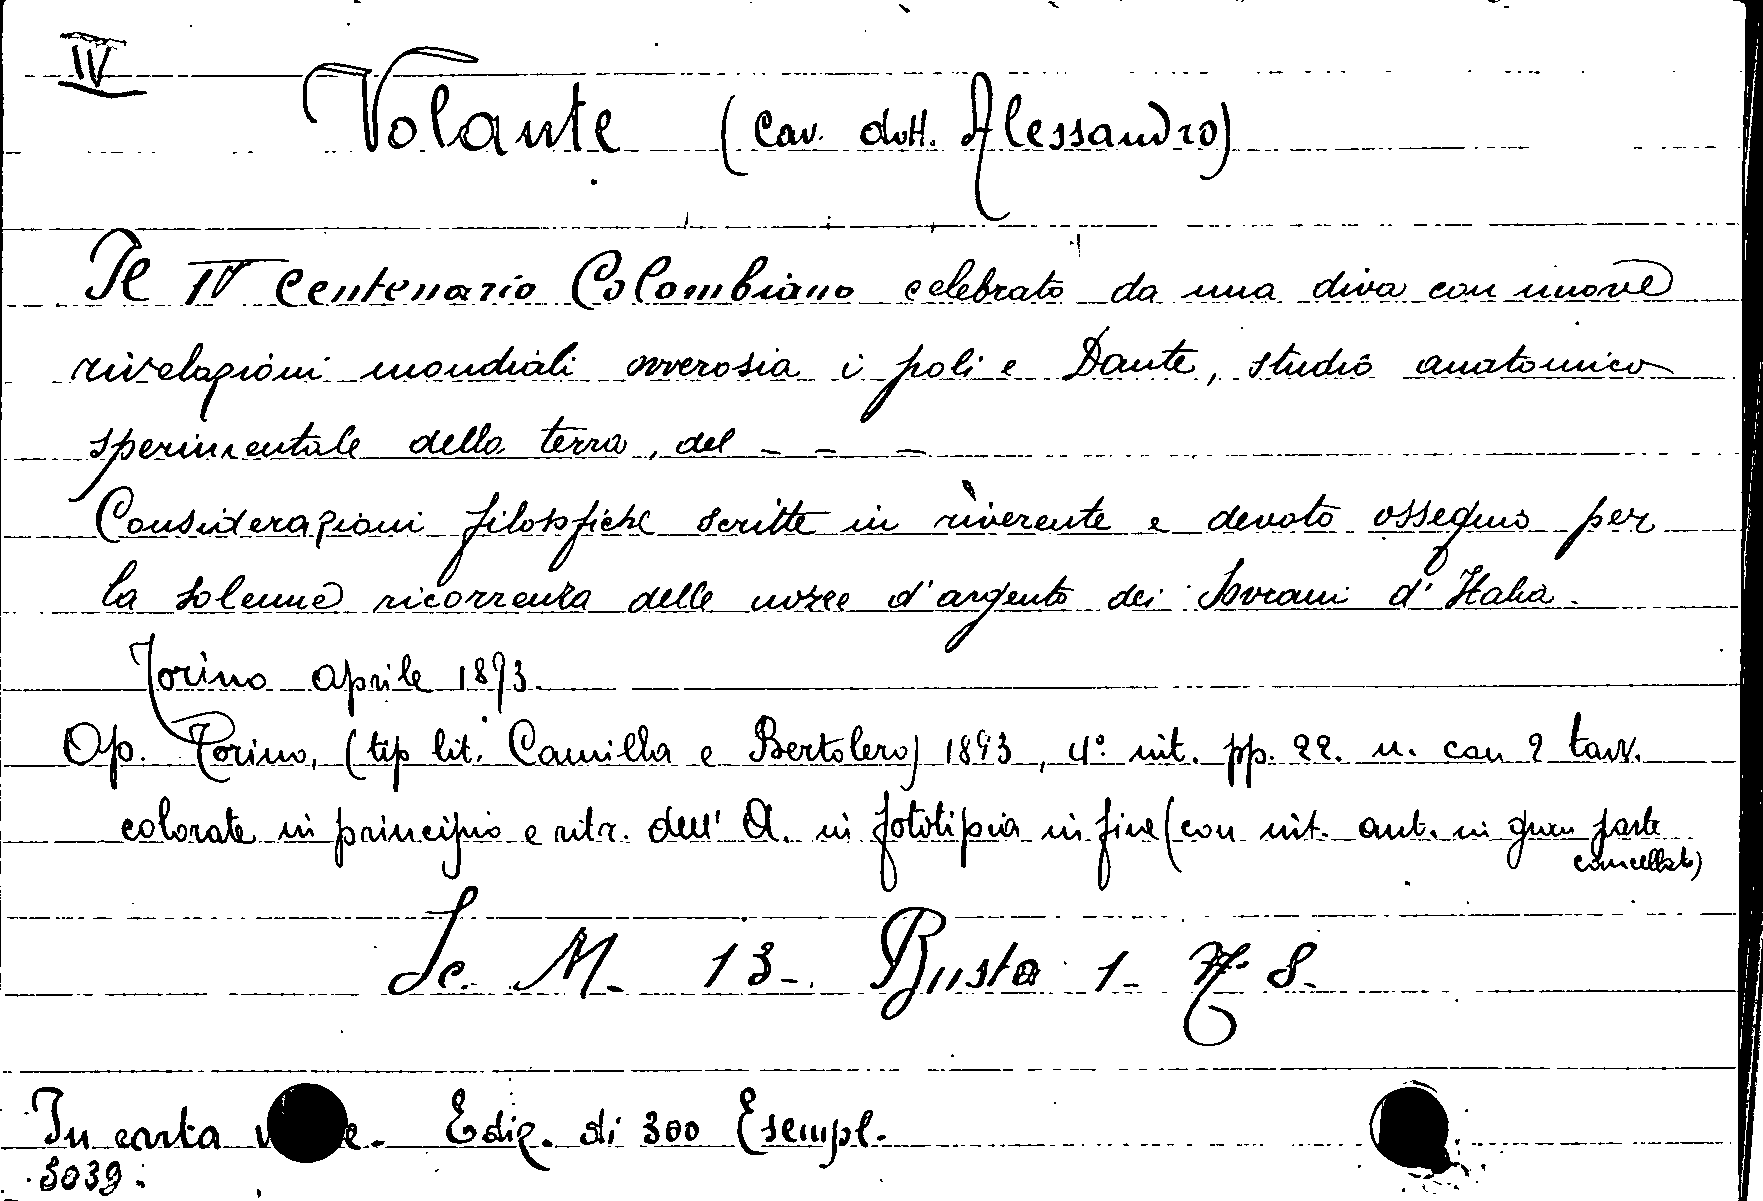 IV
Volante (cav. dott. Alessandro)
Il IV centenario Colombiano celebrato da una diva con nuove
rivelazioni mondiali ovverosia i poli e Dante, studio anatomico
sperimentale della terra, del _ _ _
Considerazioni filosofiche scritte in riverente e devoto ossequio per
la solenne ricorrenza delle nozze d'argento dei Sovrani d'Italia.
Torino aprile 1893.
Op. Torino, (tip lit. Camilla e Bertolero) 1893, 4° int. pp. 22. n. con 2 tavv.
colorate in principio e ritr. dell' A. in fototipia in fine (con int. aut. in gran parte
cancellato)
Sc. M. 13-. Busta 1- N. 8.
In carta. Ediz. di 300 Esempl.
3039.